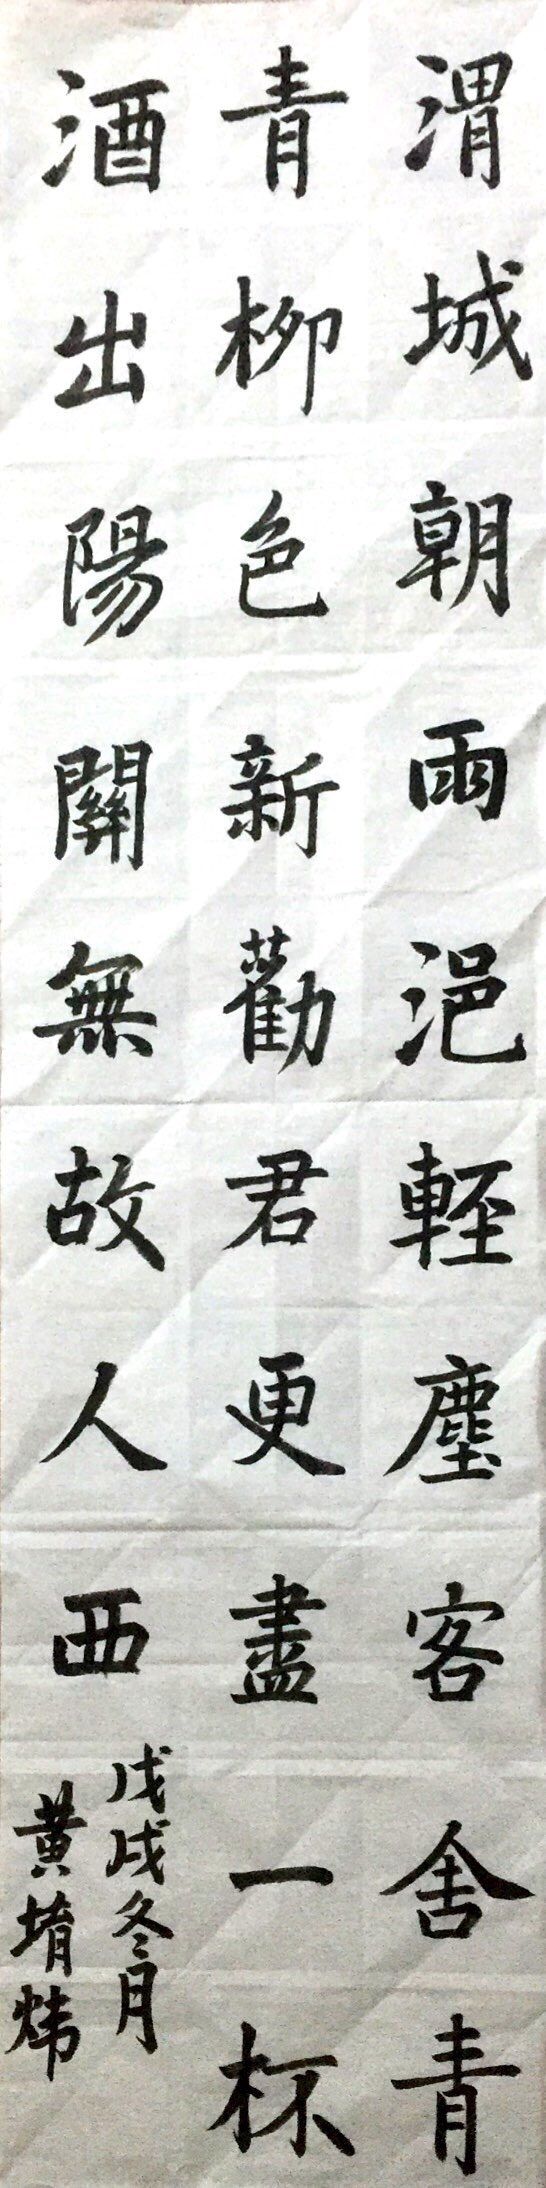 渭城朝雨浥輕塵客舍青
青柳色新勸君更盡一杯
酒出陽關無故人西
戊戌冬月
黄堉炜